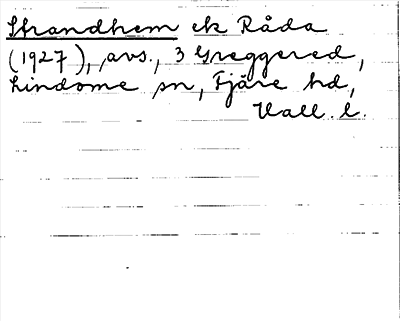 Strandhem ek Råda
(1927), avs., 3 Greggered,
Lindome sn, Fjäre hd,
Hall. l.